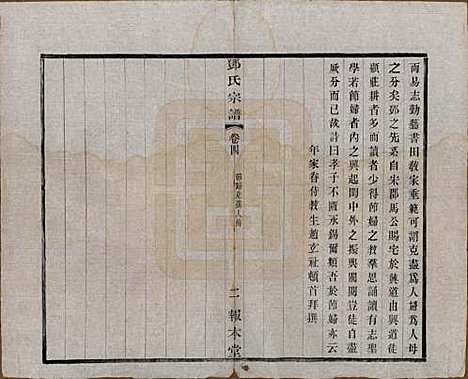 而易志勤藝書田敎家垂範可謂克盡為人婦為人母
之分矣鄧之先系自宋郡馬公賜宅於興道由興道
顓莊耕者多而讀者少得節婦之敎羣思誦讀有志聖
學若節婦者內之興起閨中外之振興閭閻豈徒自
厥分為故詩曰孝子不匱永錫爾類吾於節婦亦云
年家眷侍敎生趙玄社頓首拜撰
鄧氏宗譜
卷四
二
報本堂